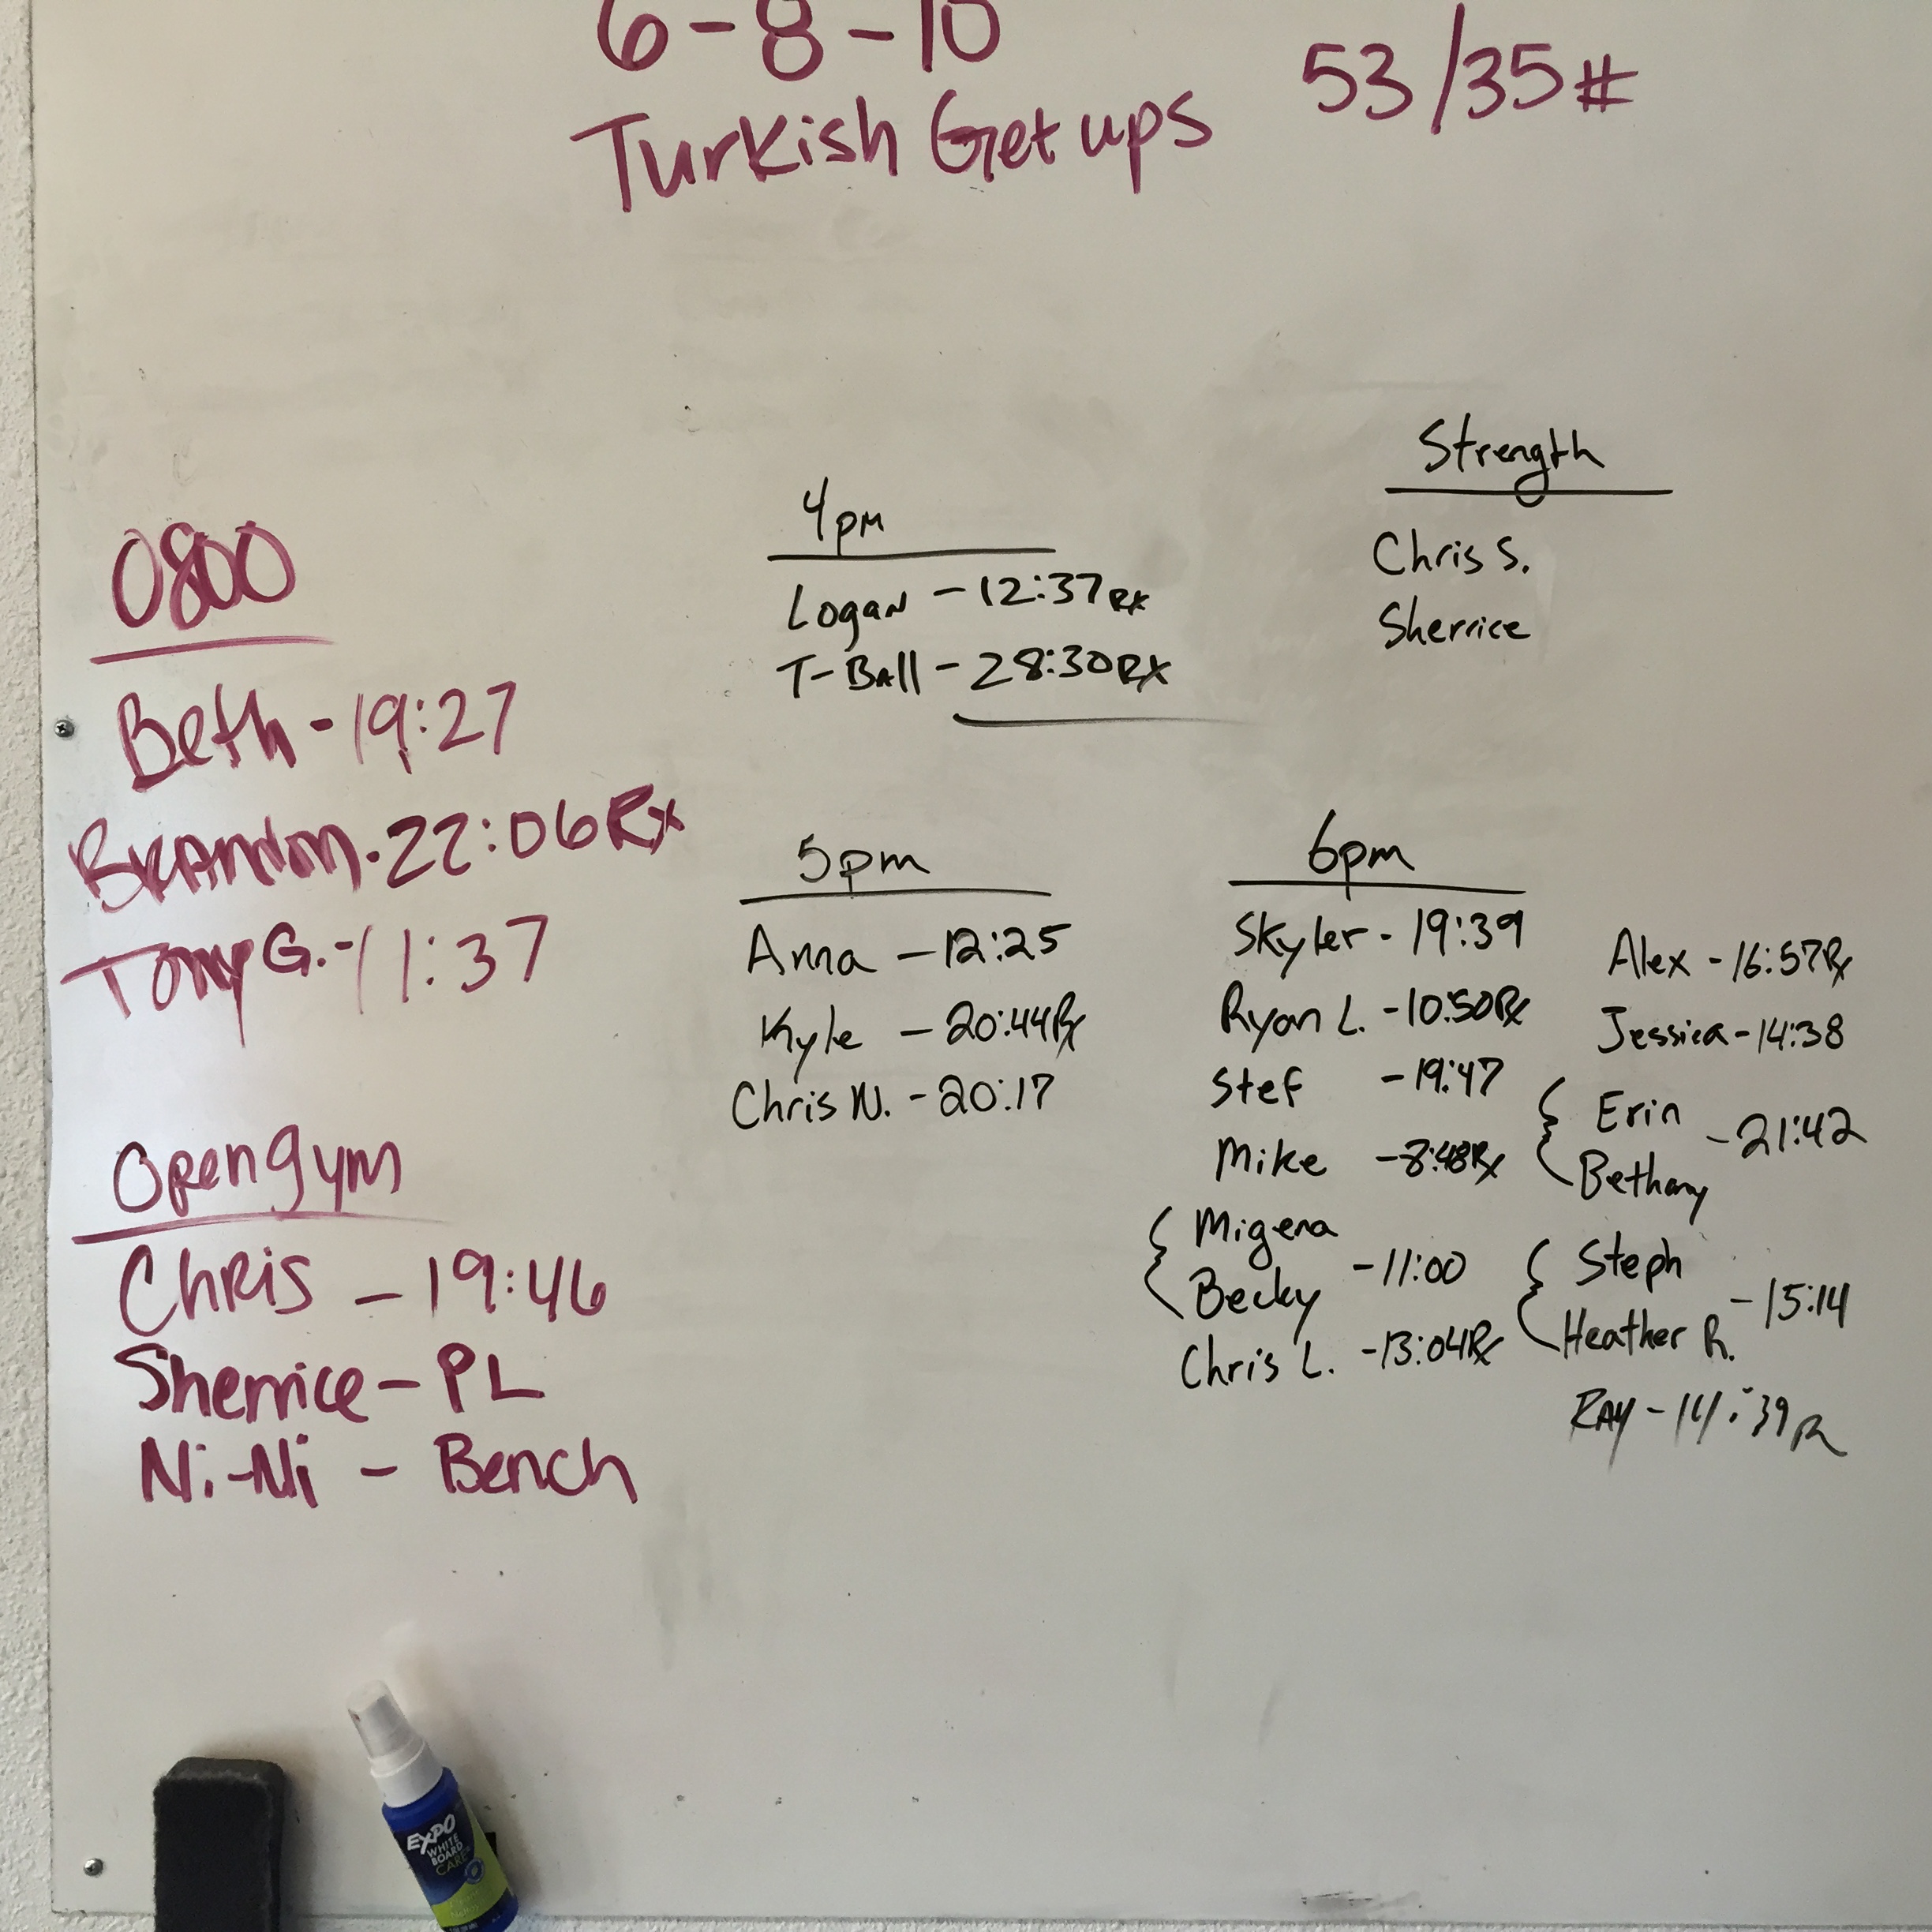 6-8-10
Turkish Get ups
53/35#
0800
Beth - 19:27
Brandon - 22:06 Rx
Tony G. - 11:37
Open gym
Chris - 19:46
Sherrice - PL
Ni-Ni - Bench
4pm
Logan - 12:37 Rx
T-Ball - 28:30 Rx
Strength
Chris S.
Sherrice
5pm
Anna - 12:25
Kyle - 20:44 Rx
Chris N. - 20:17
6pm
Skyler - 19:39
Ryan L. - 10:50 Rx
Stef - 19:47
Mike - 8:48 Rx
Migena
Becky - 11:00
Chris L. - 13:04 Rx
Alex - 16:57 Rx
Jessica - 14:38
Erin
Bethany - 21:42
Steph
Heather R. - 15:14
Ray - 14:39 R
EXPO
WHITE
BOARD
CARE